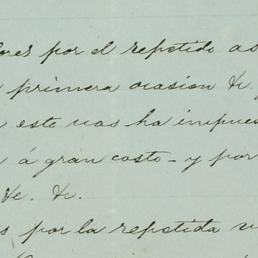 ores por el repetido as
primera ocasion &c.
este vas ha impue
á gran costo - y por
&c. &c.
s por la repetida v